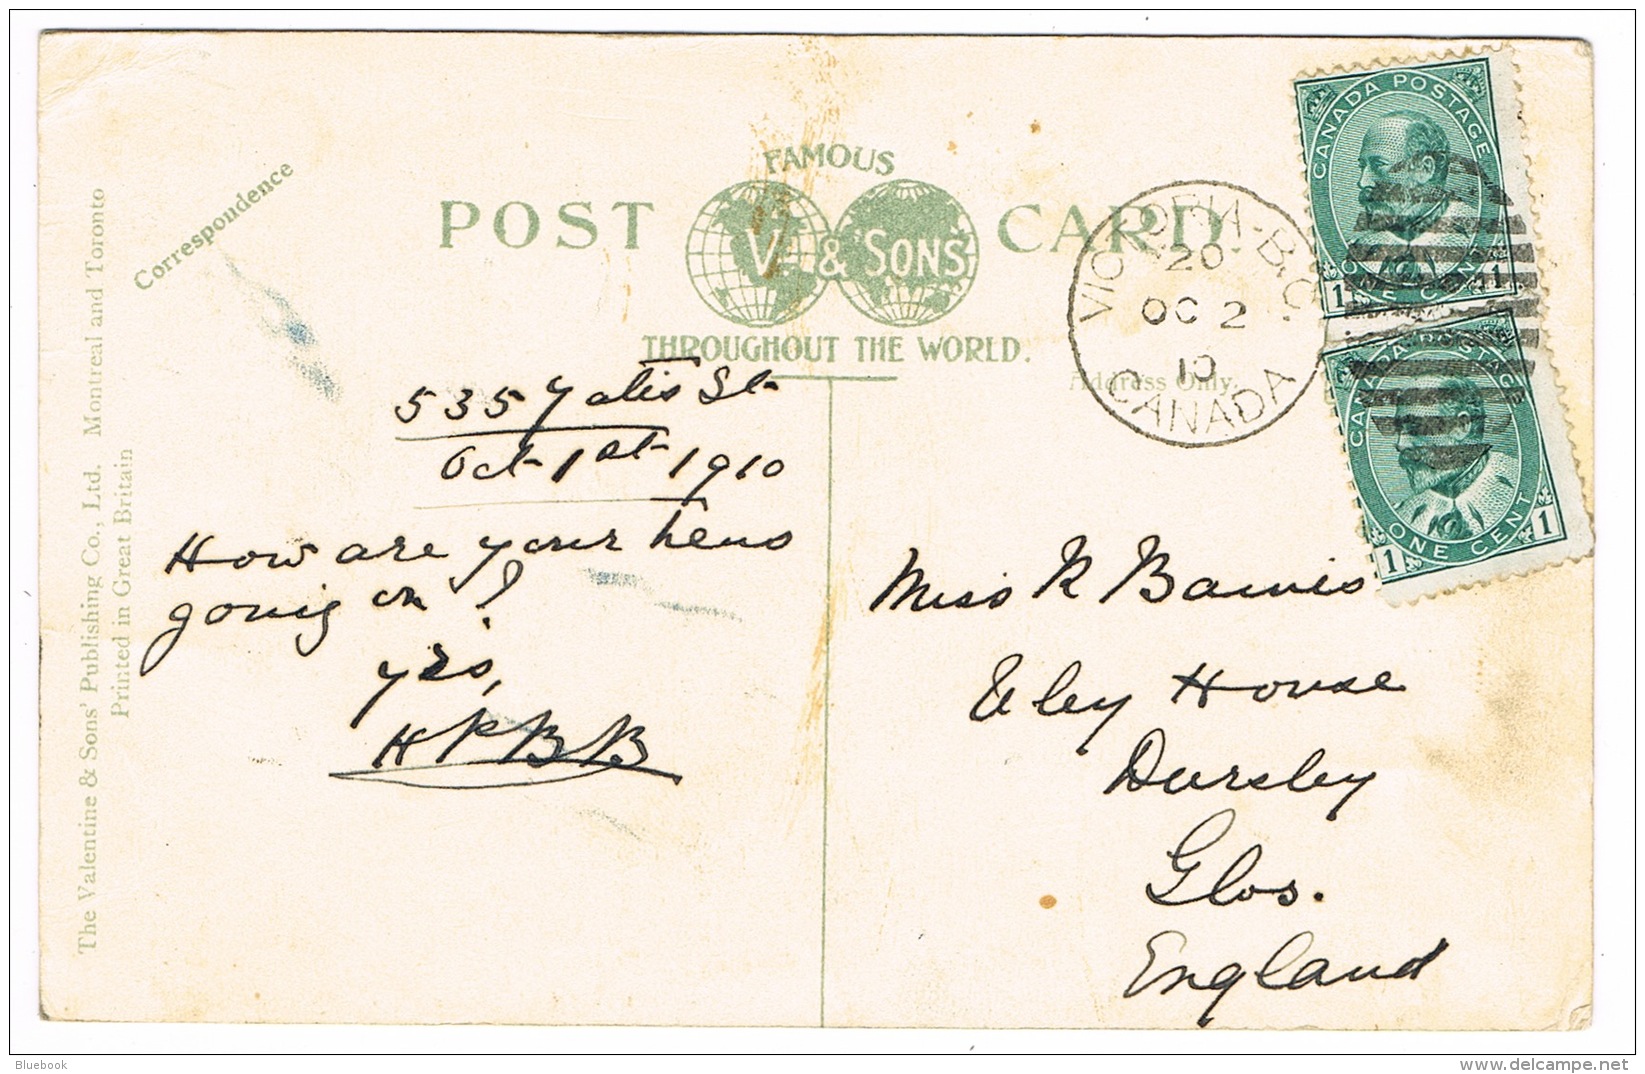 Correspondence
FAMOUS
POST CARD
V. & SONS'
THROUGHOUT THE WORLD.
Address Only.
The Valentine & Sons' Publishing Co., Ltd. Montreal and Toronto
Printed in Great Britain
VICTORIA-B.C.
20
OC 2
10
CANADA
CANADA POSTAGE
1 ONE CENT 1
CANADA POSTAGE
1 ONE CENT 1
535 Yates St
Oct 1st 1910
How are your hens
going on?
yrs,
HPBB
Miss R
Uley House
Dursley
Glos.
England
Bluebook
delcampe.net